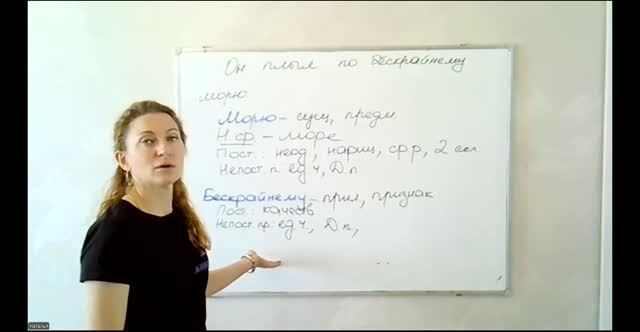 Он плыл по бескрайнему
морю
Морю – сущ, предм
Н.ф – море
Пост.: неод, нариц, ср р, 2 скл
Непост.п: ед ч, Д.п
Бескрайнему – прил, признак
Пост.: качеств
Непост. пр: ед ч., Д.п,
Наталья